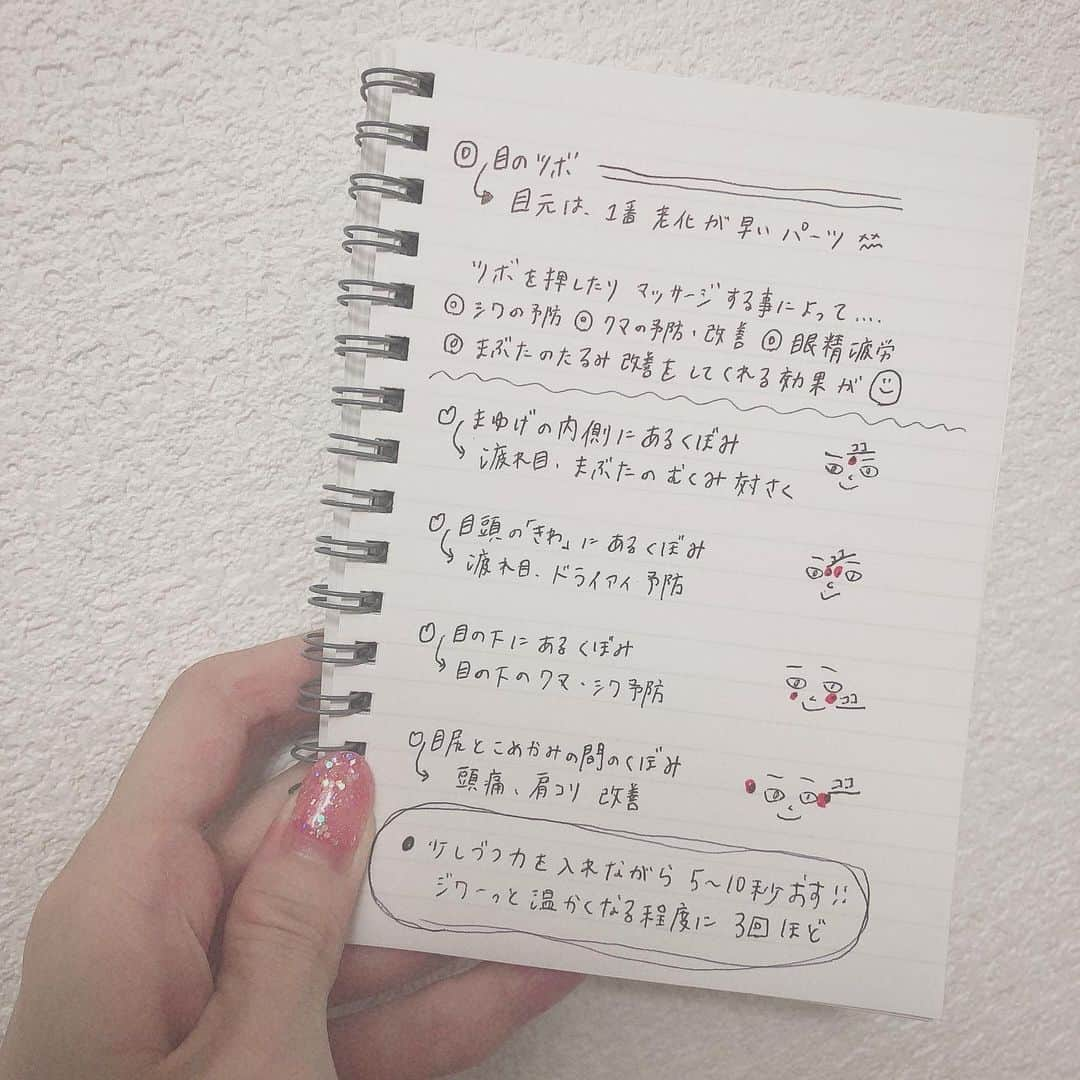 ◎目のツボ
目元は、1番 老化が 早い パーツ
ツボを押したり マッサージする事によって....
◎シワの予防 ◎クマの予防・改善 ◎眼精疲労
◎まぶたのたるみ改善をしてくれる効果が
まゆげの内側にあるくぼみ
ココ
疲れ目、まぶたの むくみ 対さく
目頭の「きわ」にあるくぼみ
ココ
疲れ目、ドライアイ 予防
目の下に あるくぼみ
目の下のクマ・シワ予防
ココ
目尻とこめかみの間のくぼみ
ココ
頭痛、肩コリ 改善
●少しづつ力を入れながら 5〜10秒おす!!
ジワーっと温かくなる程度に 3回ほど